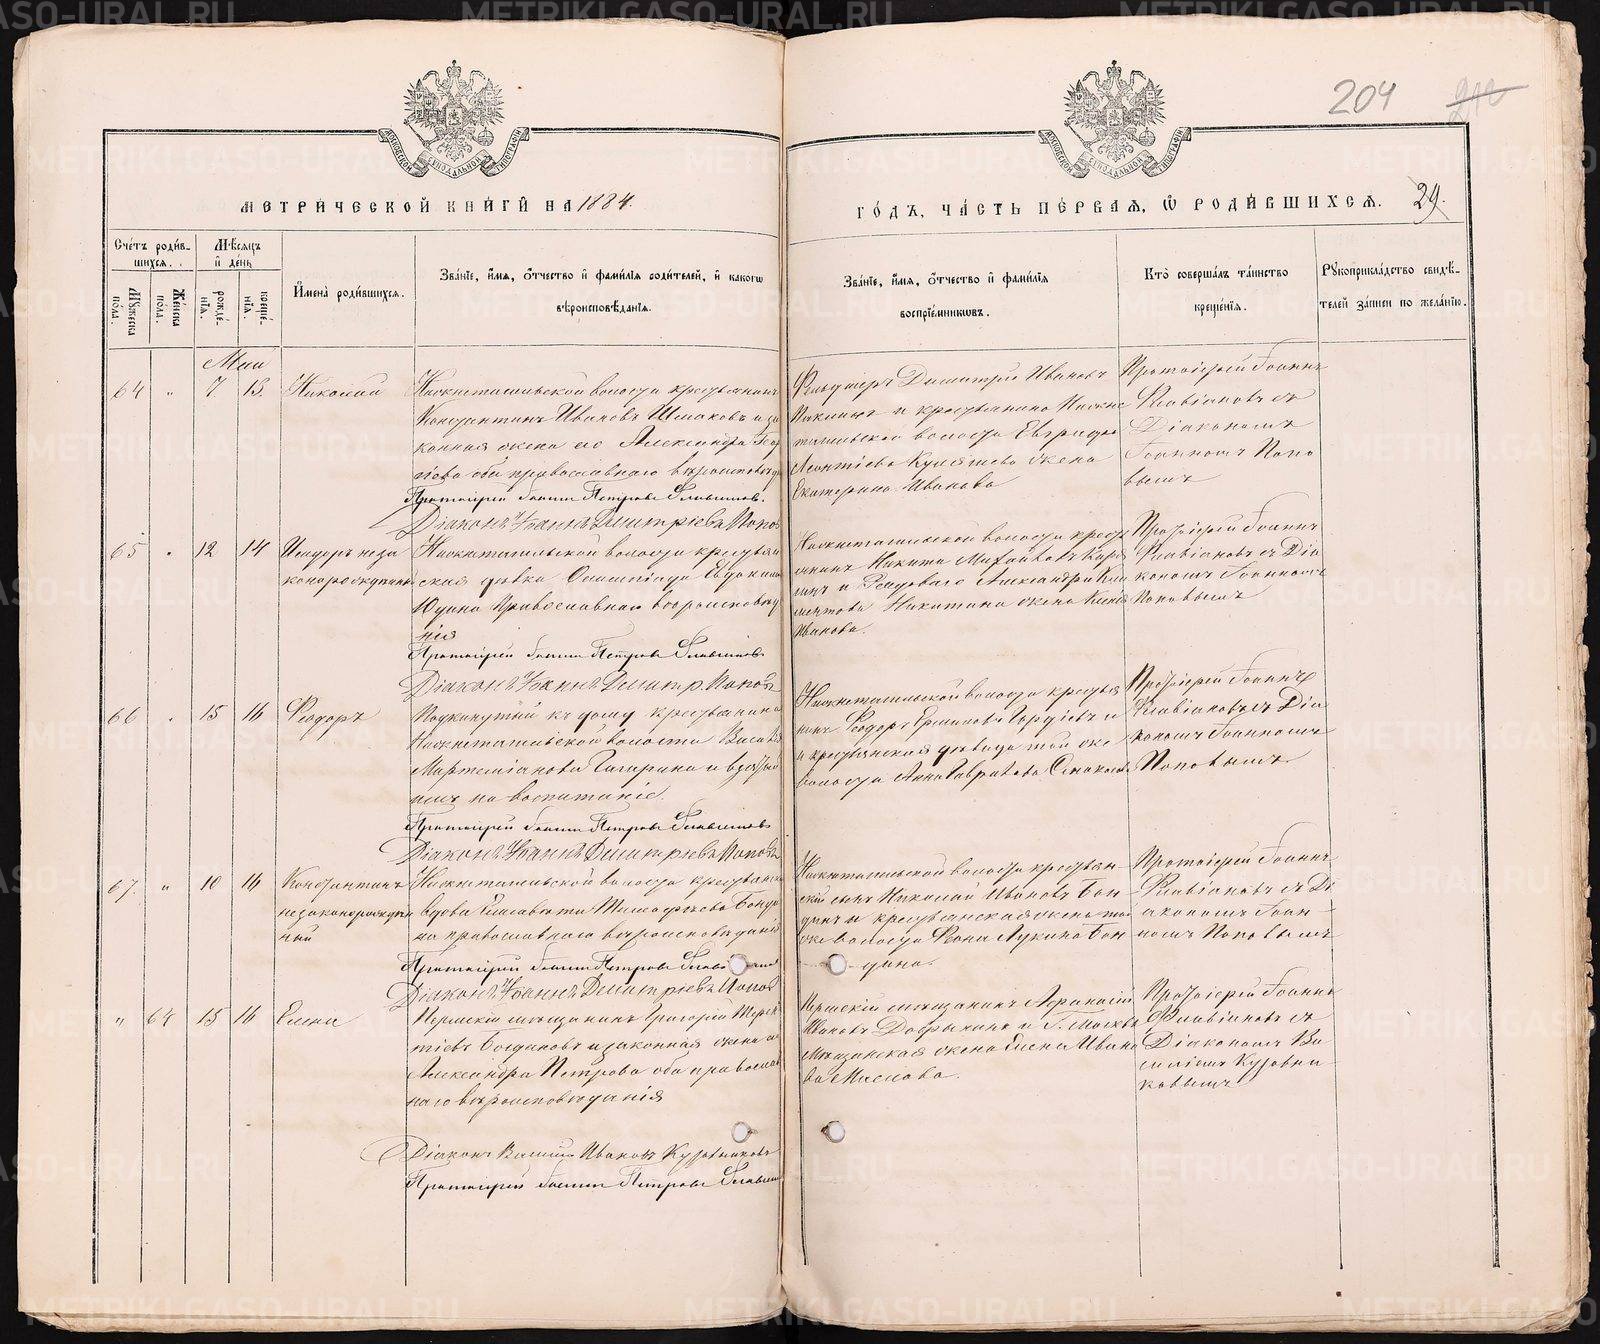 204
МЕТРИЧЕСКОЙ КНИГИ НА 1884.
ГОДЪ, ЧАСТЬ ПЕРВАЯ, Ѡ РОДИВШИХСЯ. 29.
Счетъ родив-
шихся.
Мѣсяцъ
и день
Мужеска
пола.
Женска
пола.
рожде-
нія.
креще-
нія.
Имена родившихся.
Званіе, имя, отчество и фамилія родителей, и какогѡ
вѣроисповѣданія.
Званіе, имя, отчество и фамилія
воспріемникѡвъ.
Кто совершалъ таинство
крещенія.
Рукоприкладство свидѣ-
телей записи по желанію.
Маи
64 " 7 13. Николай
Нижнетагильской волости крестьянинъ
Константинъ Ивановъ и за
конная жена его Александра Геор
гіева оба православнаго вѣроисповѣд
Протоіерей Іоаннъ Петровъ Флавіановъ.
Діаконъ Іоаннъ Димитріевъ Поповъ
Фельдшеръ Димитрій Ивановъ
и крестьянина Нижне
тагильской волости
Леонтіева жена
Екатерина Иванова
Протоіерей Іоаннъ
Флавіановъ съ
Діакономъ
Іоанномъ Попо
вымъ
65 " 12 14 Исидоръ неза
коннорожденный
Нижнетагильской волости крестьян
ская дѣвка Олимпіада Евдокимова
Юдина Православнаго вѣроисповѣд
нія
Протоіерей Іоаннъ Петровъ Флавіановъ
Діаконъ Іоаннъ Димитр. Поповъ
Нижнетагильской волости кресть
янинъ Никита Михайловъ
Никитина жена
Иванова.
Протоіерей Іоаннъ
Флавіановъ съ Діа
кономъ Іоанномъ
Поповымъ
66 " 15 16 Ѳеодоръ
Подкинутый къ дому крестьянина
Нижнетагильской волости Василія
Мартемьянова Гагарина и взятый
имъ на воспитаніе.
Протоіерей Іоаннъ Петровъ Флавіановъ
Діаконъ Іоаннъ Димитріевъ Поповъ
Нижнетагильской волости крестья
нинъ Ѳеодоръ Гордѣевъ и
и крестьянская дѣвица той же
волости Анна Гаврилова
Протоіерей Іоаннъ
Флавіановъ съ Діа
кономъ Іоанномъ
Поповымъ.
67. " 10 16 Константинъ
незаконнорожден
ный
Нижнетагильской волости крестьянская
вдова Елисавета Тимофѣева Бонди
на православнаго вѣроисповѣданія
Протоіерей Іоаннъ Петровъ
Діаконъ Іоаннъ Димитріевъ Поповъ
Нижнетагильской волости крестьян-
скій сынъ Николай Ивановъ Бон
динъ и крестьянская жена той
же волости Лукина Бон
дина.
Протоіерей Іоаннъ
Флавіановъ съ Ді
акономъ Іоан-
номъ Поповымъ
" 64 15 16 Елена
Пермскій мѣщанинъ Григорій Терен
тіевъ Богдановъ и законная жена его
Александра Петрова оба православ
наго вѣроисповѣданія
Діаконъ Василій Ивановъ Кузовниковъ
Протоіерей Іоаннъ Петровъ
Пермскій мѣщанинъ Афанасій
Ивановъ Добрынинъ и Г. Москвы
Мѣщанская жена Елена Ивано
ва Маслова.
Протоіерей Іоаннъ
Флавіановъ съ
Діакономъ Ва
силіемъ Кузовни
ковымъ
METRIKI.GASO-URAL.RU